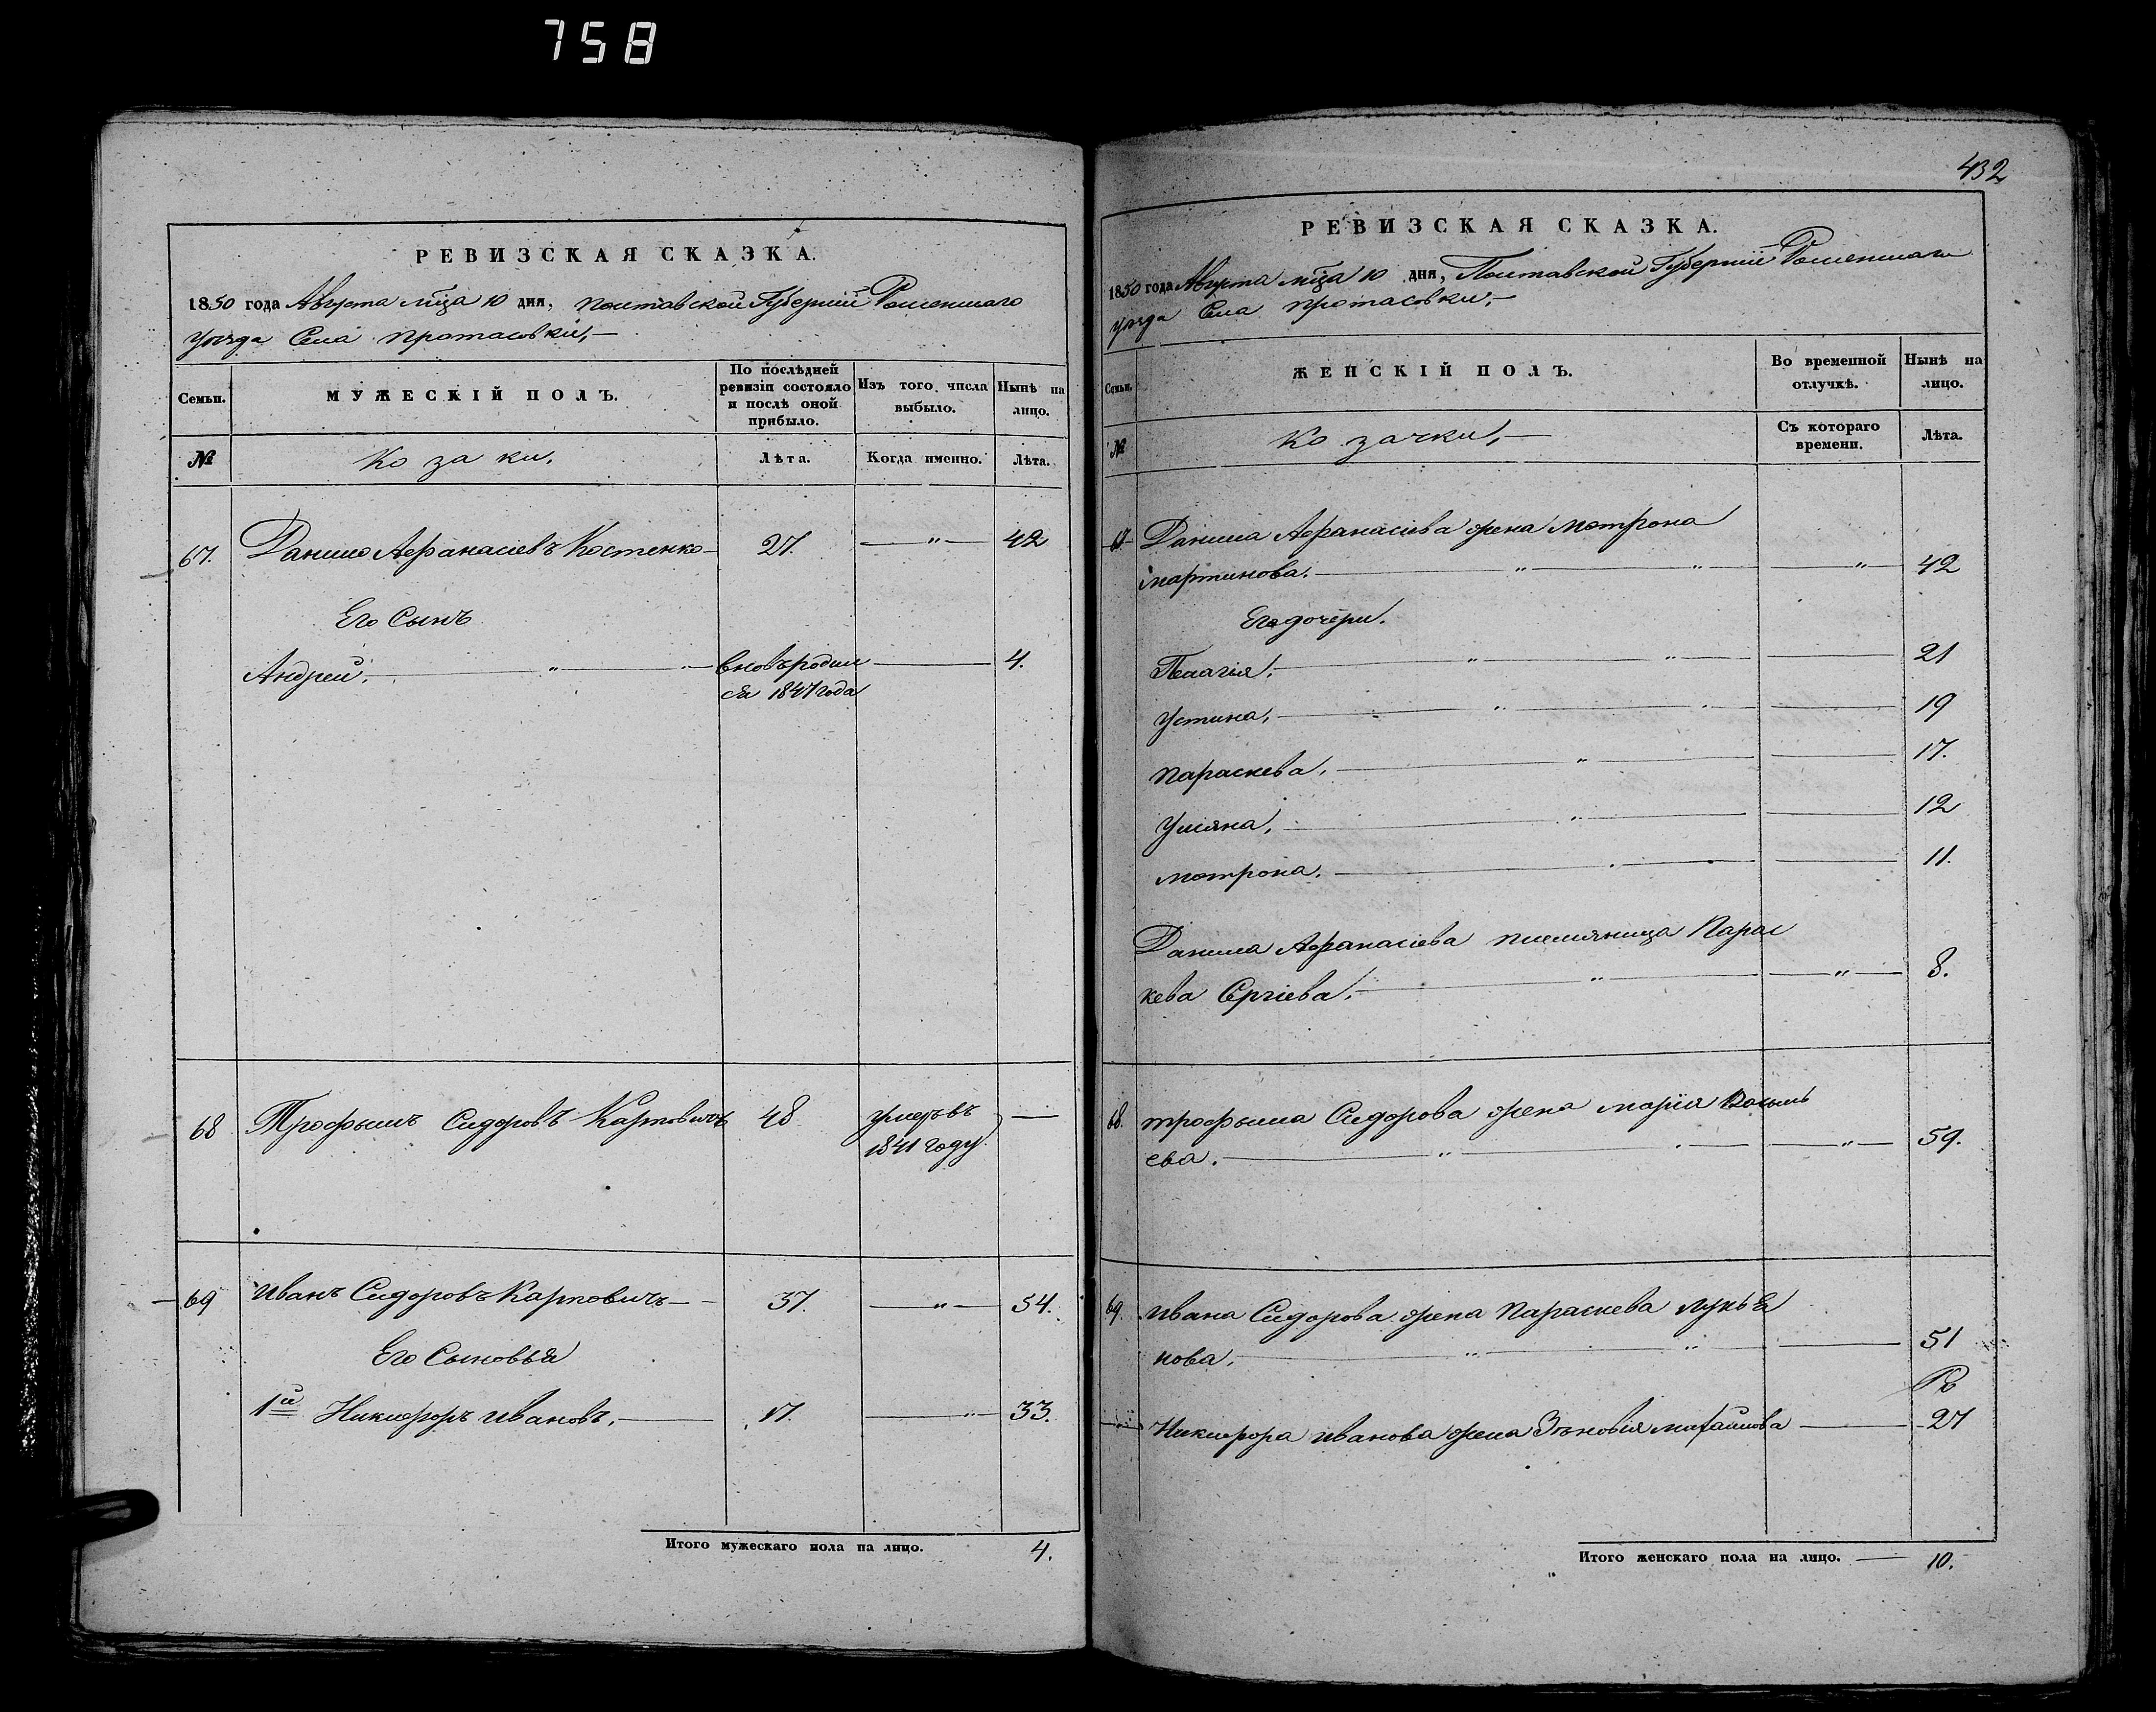 758
РЕВИЗСКАЯ СКАЗКА.
1850 года Августа мца 10 дня, Полтавской Губерніи Роменшаго
уезда Села Протасовки,
Семьи.
МУЖЕСКІЙ ПОЛЪ.
По послѣдней ревизіи состояло и послѣ оной прибыло.
Изъ того числа выбыло.
Нынѣ на лицо.
№
Козаки.
Лѣта.
Когда именно.
Лѣта.
67. Данило Афанасіевъ Костенко 27. — „ — 42
Его Сынъ
Андрей. „ „ вновь родил 4.
ся 1847 года
68 Трофымъ Сидоровъ Карповичъ 48 умеръ въ —
1841 году.
69 Иванъ Сидоровъ Карповичъ 37. — „ — 54.
Его Сыновья
1й Никифоръ Ивановъ, 17. „ 33.
Итого мужескаго пола на лицо. 4.
432
РЕВИЗСКАЯ СКАЗКА.
1850 года Августа мца 10 дня, Полтавской Губерніи Роменшаго
уезда Села Протасовки,
Семьи.
ЖЕНСКІЙ ПОЛЪ.
Во временной отлучкѣ.
Нынѣ на лицо.
№
Козачки,
Съ котораго времени.
Лѣта.
67 Данила Афанасіева жена Мотрона
Мартинова. „ „ „ 42
Его дочери.
Пелагія. „ „ 21
Устина, „ „ 19
Параскева, „ 17.
Уліяна, „ 12
Мотрона. 11.
Данила Афанасіева племяница Парас
кева Сергіева. „ „ 8.
68. Трофыма Сидорова жена Марія Василь
ева. „ „ 59.
69. Ивана Сидорова жена Параскева Лукья
нова. „ „ 51
Никифора Иванова жена Зѣновія Михайлова 27
Итого женскаго пола на лицо. 10.